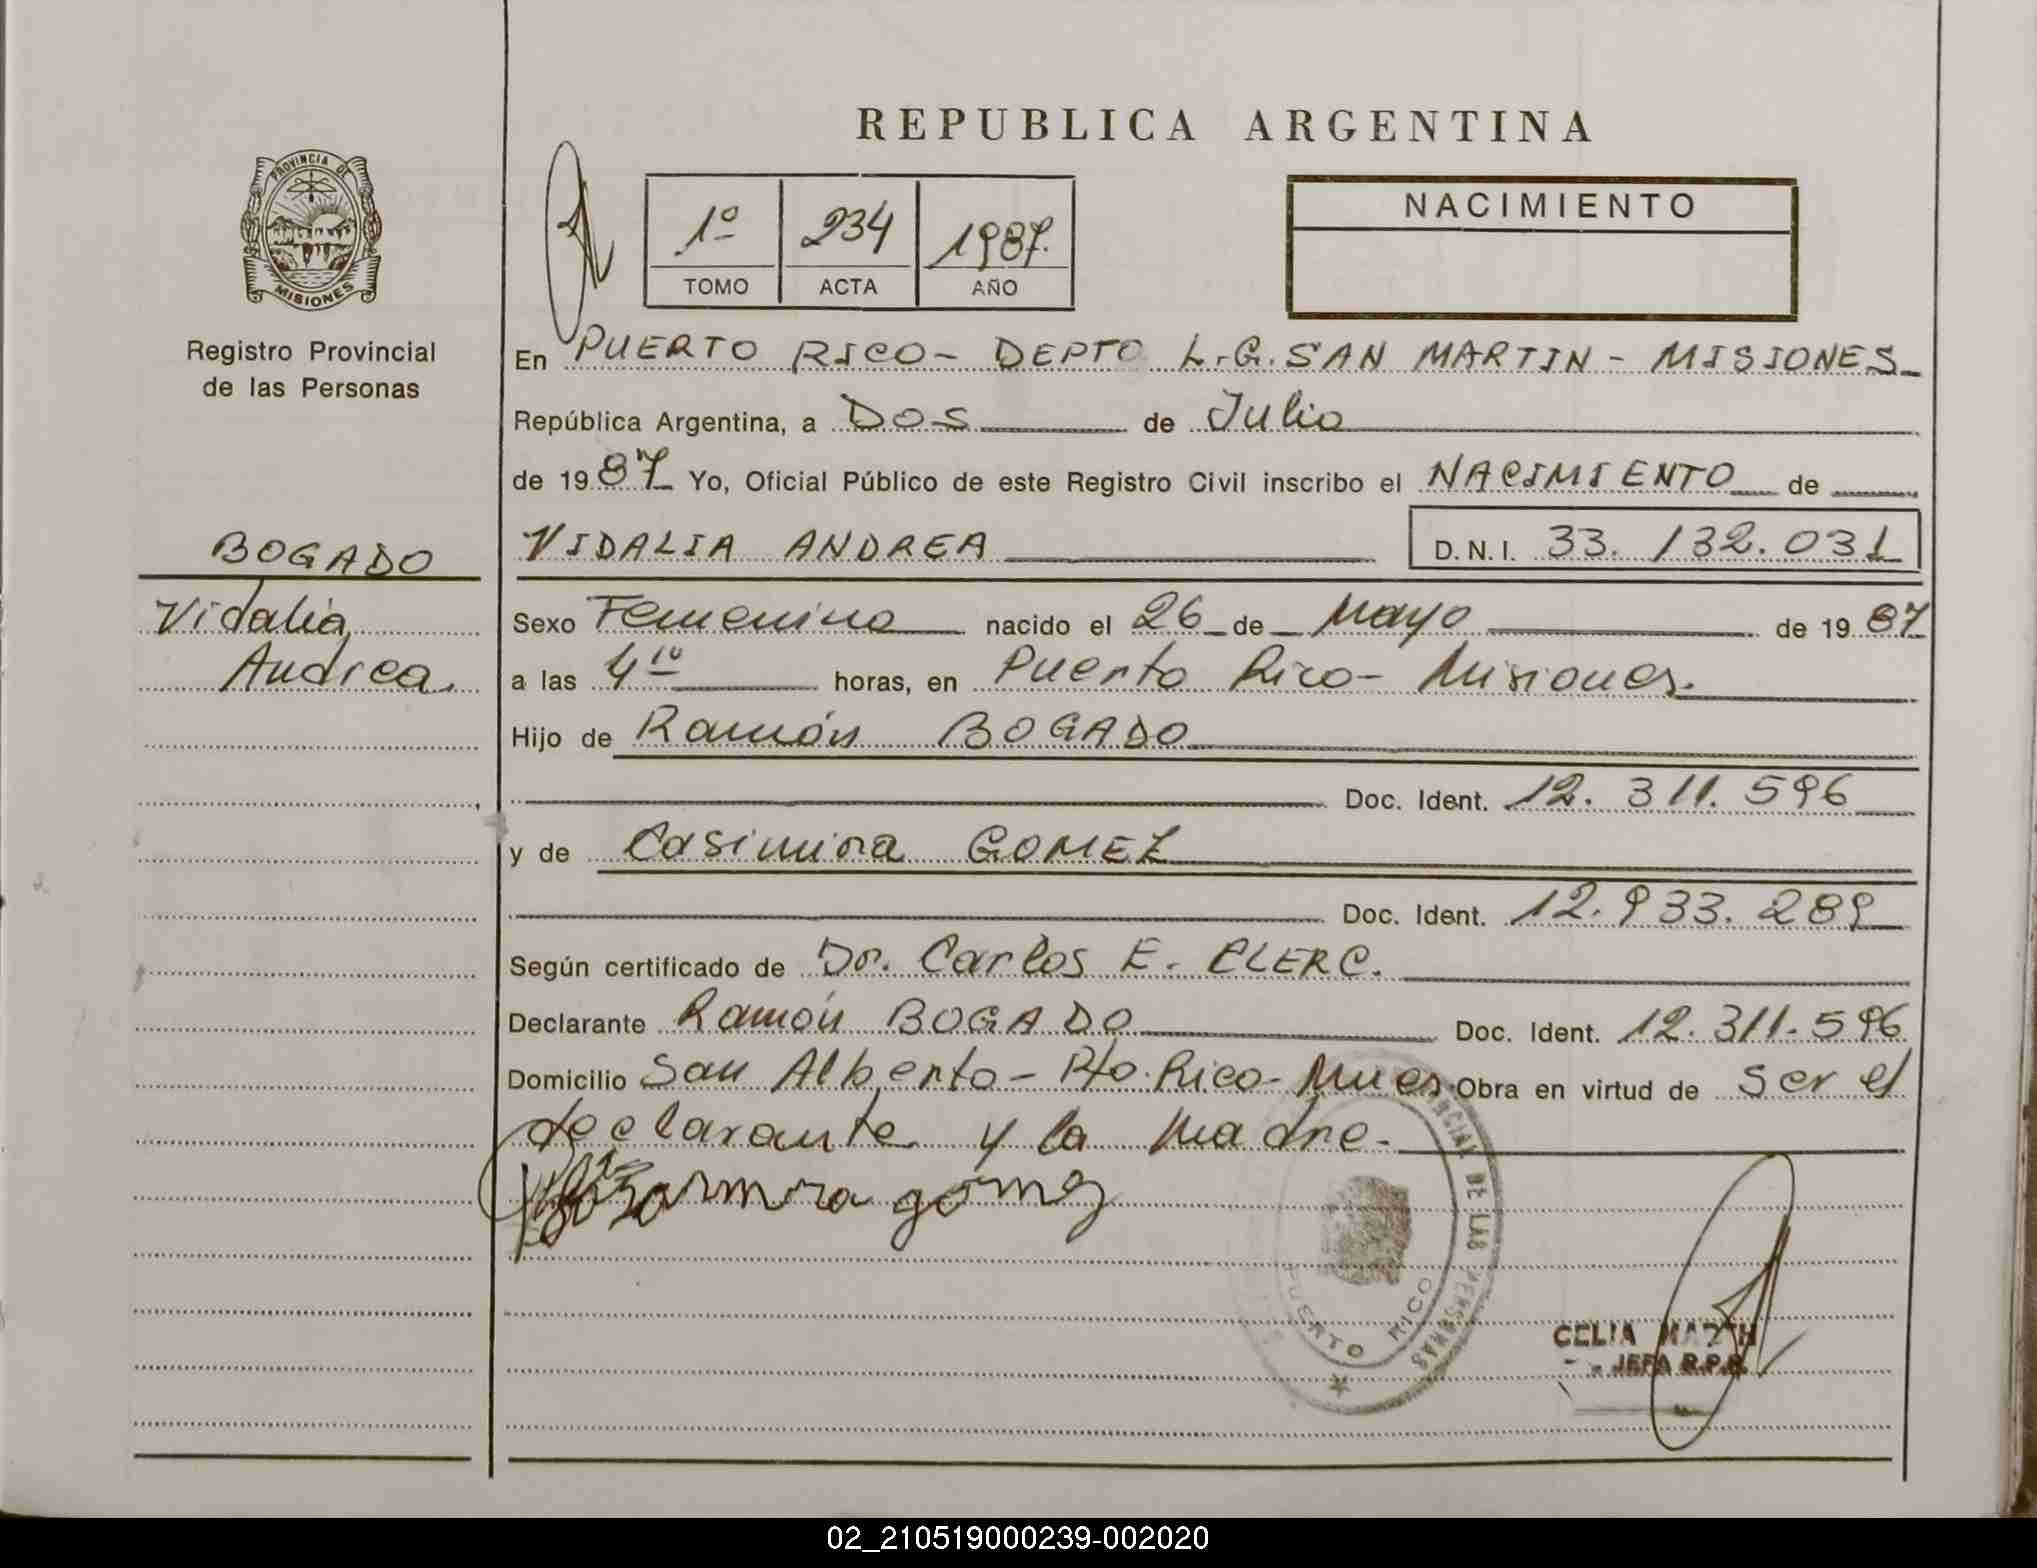 REPUBLICA ARGENTINA
PROVINCIA DE
MISIONES
Registro Provincial
de las Personas
1º 234 1987.
TOMO ACTA AÑO
NACIMIENTO
En PUERTO RICO - DEPTO L.G. SAN MARTIN - MISIONES
República Argentina, a DOS de Julio
de 1987 Yo, Oficial Público de este Registro Civil inscribo el NACIMIENTO de
BOGADO
Vidalia
Andrea.
VIDALIA ANDREA D.N.I. 33.132.031
Sexo Femenino nacido el 26 de Mayo de 1987
a las 4¹⁰ horas, en Puerto Rico - Misiones.
Hijo de Ramón BOGADO
Doc. Ident. 12.311.596
y de Casimira GOMEZ
Doc. Ident. 12.933.289
Según certificado de Dr. Carlos E. CLERC.
Declarante Ramón BOGADO Doc. Ident. 12.311.596
Domicilio San Alberto - Pto. Rico - Mnes. Obra en virtud de ser el
declarante y la madre.
gomez
DE LAS PERSONAS
PUERTO RICO
CELIA
JEFA R.P.P.
02_210519000239-002020